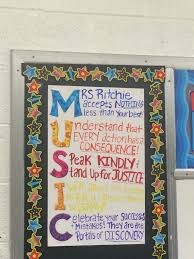 MRS. Ritchie
accepts NOTHING
less than Your best!
Understand that
EVERY action has a
CONSEQUENCE!
Speak KINDLY &
stand Up for JUSTICE
I
Celebrate your Successes
+ Mistakes! They are the
Portals of DISCOVERY